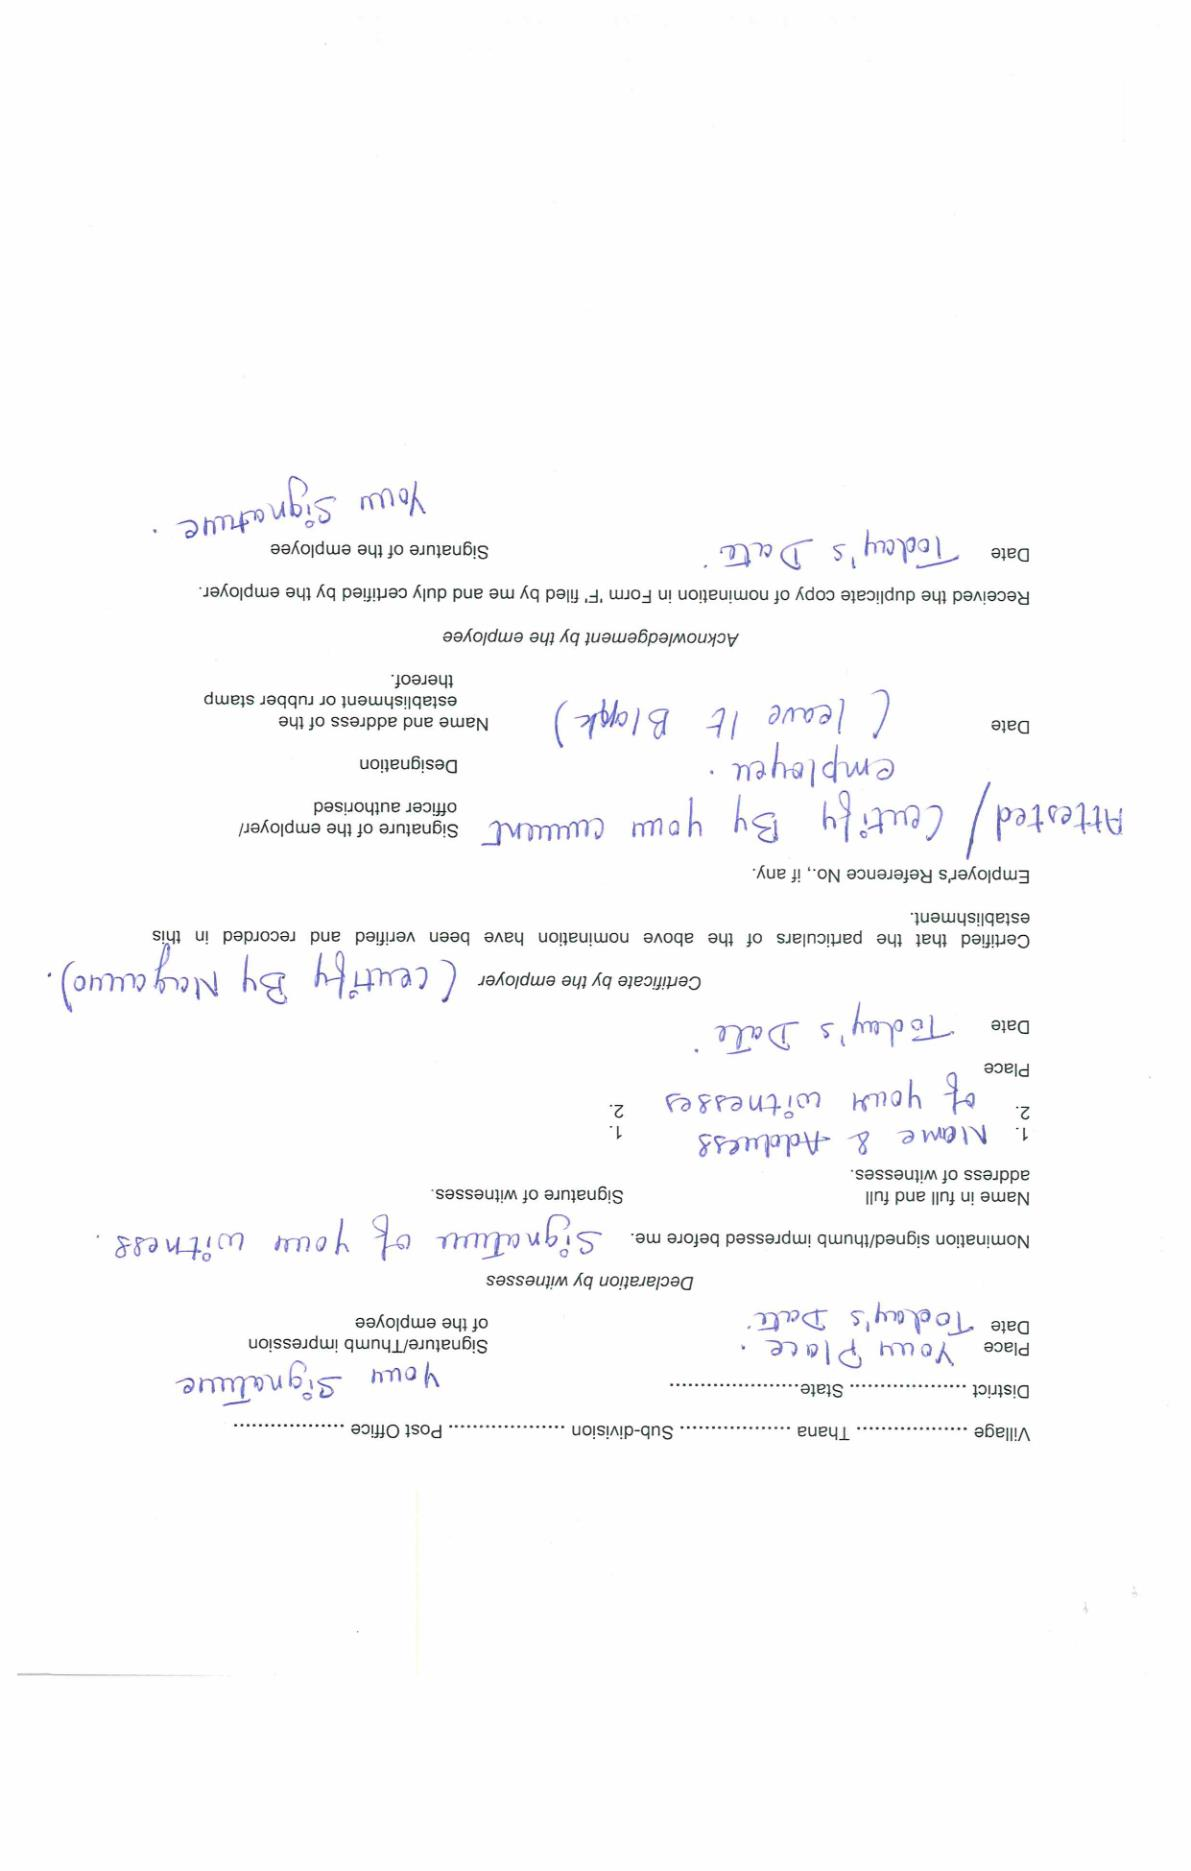 Village .................. Thana .................. Sub-division ................... Post Office ..................
District ................... State......................
Your Signature
Place Your Place.
Signature/Thumb impression
Date Today's Date.
of the employee
Declaration by witnesses
Nomination signed/thumb impressed before me. Signature of your witness.
Name in full and full
Signature of witnesses.
address of witnesses.
1. Name & Address
1.
2. of your witnesses
2.
Place
Date Today's Date.
Certificate by the employer (Certify By Nagarro).
Certified that the particulars of the above nomination have been verified and recorded in this
establishment.
Employer's Reference No., if any.
Attested/ Certify By your current
Signature of the employer/
officer authorised
employer.
Designation
Date (leave It Blank)
Name and address of the
establishment or rubber stamp
thereof.
Acknowledgement by the employee
Received the duplicate copy of nomination in Form 'F' filed by me and duly certified by the employer.
Date Today's Date.
Signature of the employee
Your Signature.